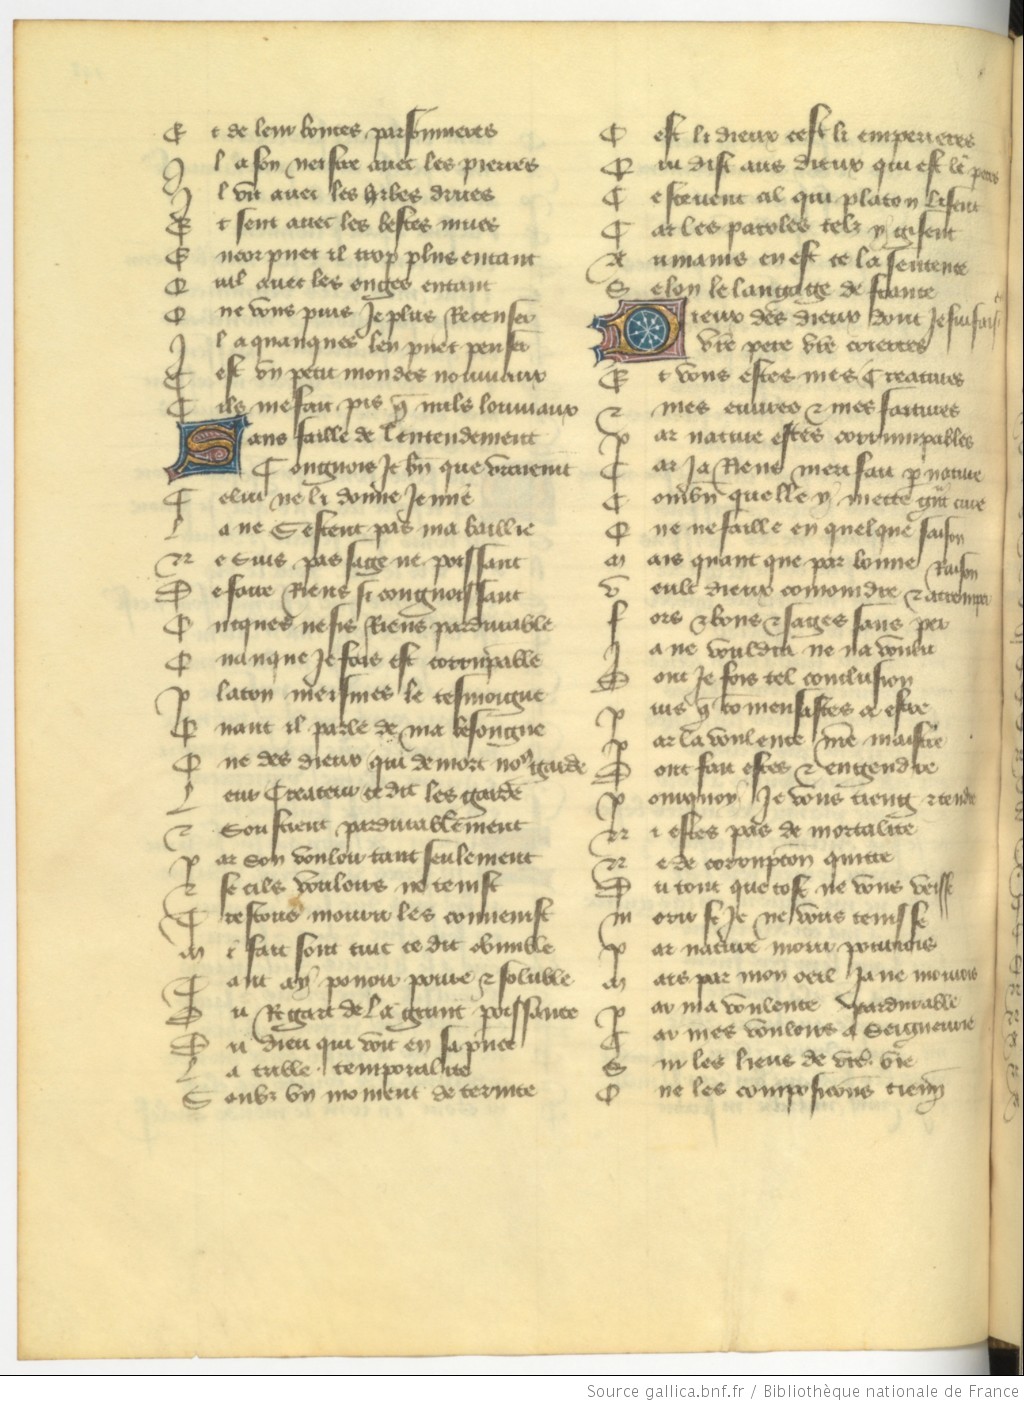 E t de leur bontes parsonnieres
I l a son nestre auec les pierres
I l vit auec les herbes drues
E t sent auec les bestes mues
E ncor puet il trop plus entant
Q uil auec les anges entant
Q ne vous puis Je plus Recenser
I l a quanques len puet penser
C est vn petit mondes nouuiaux
C ils me fait pis q̃ nulz louuiaux
S ans faille de lentendement
C ongnois Je bn̄ que vraiemt
C elui ne li donne Je mie
L a ne Sestent pas ma baillie
N e Suis pas sage ne poissant
D e faire Riens si congnoissant
O ncques ne fis Riens pardurable
Q uanque Je fois est corrupable
P laton meismes le tesmoigne
Q uant il parle de ma besongne
E ne des dieux qui de mort nont garde
L eur Createur ce dit les garde
E t Soustient pardurablement
P ar Son vouloir tant seulement
E t se cils vouloirs ne tenist
T restous mourir les conuenist
M i fait sont tuit ce dit obnuble
T ant ay ponoir poure & soluble
D u Regart de La grant poissance
D u dieu qui voit en sa pñce
L a trible temporalite
S oubz vn moment de ternite
C est li dieux cest li emperieres
Q ui dist aus dieux qui est le peres
C e sceuent cil qui platon lisent
C ar les paroles telz y gisent
A u mains en est ce la sentence
S elon le langaige de france
D ieux des dieux dont Je sui fais
Vr̃e pere vr̃e creerres
E t vous estes mes Creatures
E t mes euures & mes faitures
P ar nature estes corrumpables
C ar Ja Riens mere fait p nature
C ombn̄ quelle y mette grāt cure
Q ue ne faille en quelque saison
M ais quant que par bonne Raison
V eult dieux conioindre & attremper
F ors & bons & sages sans per
J a ne vouldra ne na voulu
D ont Je fois tel conclusion
P uis q̃ comensastes a estre
P ar la voulente mr̃e maistre
D ont fait estes & engendre
P ourquoy Je vous tieng & tendre
N i estes pas de mortalite
N e de corrupcion quitte
D u tout que tost ne vous veisse
M orir se Je ne vous tenisse
P ar nature morir pourrois
M ais par mon oeil Ja ne mourois
P ar ma voulente pardurable
C ar mes vouloirs a Seigneurie
S ur les liens de vr̃e vie
Q ue les composicions tienn̄t
Source gallica.bnf.fr / Bibliothèque nationale de France